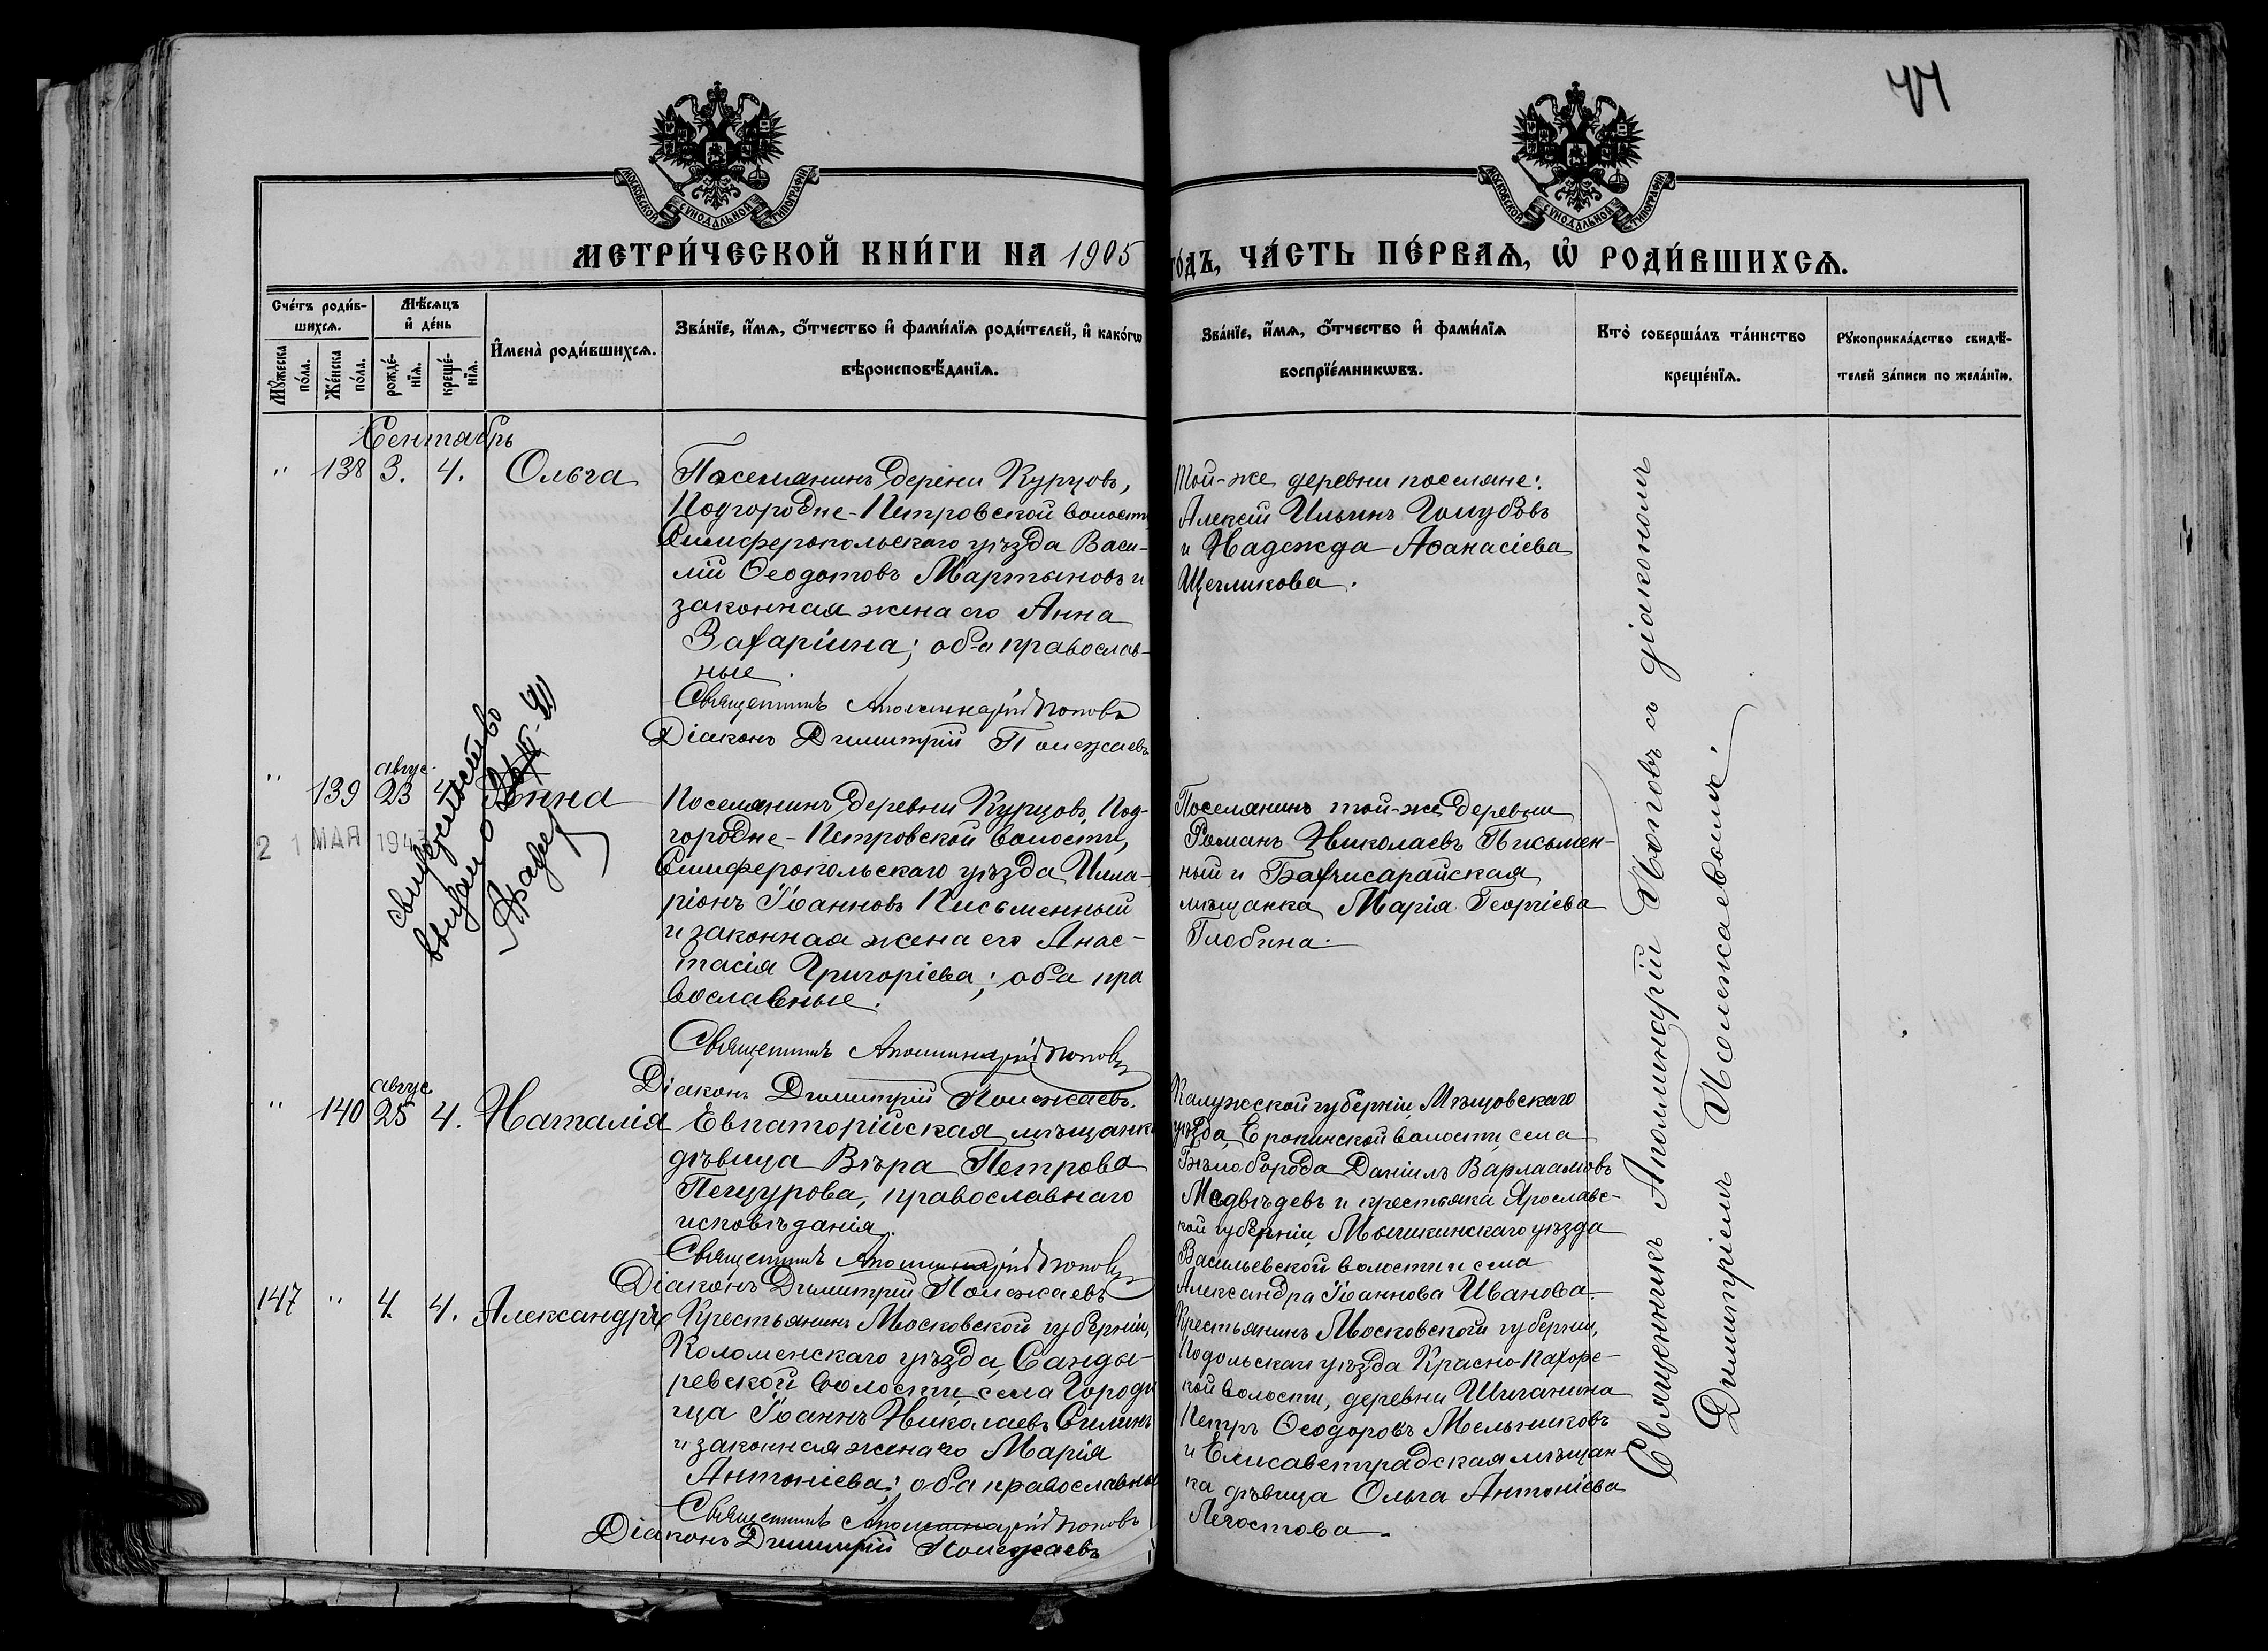 МОСКОВСКОЙ СѴНОДАЛЬНОЙ ТИПОГРАФІИ
МОСКОВСКОЙ СѴНОДАЛЬНОЙ ТИПОГРАФІИ
МЕТРИ́ЧЕСКОЙ КНИ́ГИ НА 1905
го́дъ, ЧА́СТЬ ПЕ́РВАѦ, Ѽ РОДИ́ВШИХСѦ.
Сче́тъ роди́в-
шихсѧ.
Мꙋ́жеска
по́ла.
Же́нска
по́ла.
Мѣ́сѧцъ
и҆ де́нь
рожде́-
нїѧ.
креще́-
нїѧ.
И҆мена̀ роди́вшихсѧ.
Зва́нїе, и҆́мѧ, ѻ҆́тчество и҆ фами́лїѧ роди́телей, и҆ како́гѡ
вѣроисповѣ́данїѧ.
Зва́нїе, и҆́мѧ, ѻ҆́тчество и҆ фами́лїѧ
воспрїе́мникѡвъ.
Кто̀ соверша́лъ та́инство
креще́нїѧ.
Рꙋкоприкла́дство свидѣ́-
телей за́писи по жела́нїю.
Сентябрь
" 138 3. 4. Ольга
Поселянинъ дерени Курцовъ,
Подгородне-Петровской волости
Симферопольскаго уѣзда Васи-
лій Ѳеодотовъ Мартыновъ и
законная жена его Анна
Захаріина; оба православ-
ные.
Священникъ Аполлинарій Поповъ
Діаконъ Димитрій Полежаевъ
Той-же деревни поселяне:
Алексій Ильинъ Голубовъ
и Надежда Аѳанасіева
Щегликова.
" 139 авгус. 23 4 Анна
Поселянинъ деревни Курцовъ, Под-
городне-Петровской волости,
Симферопольскаго уѣзда Илла-
ріонъ Іоанновъ Письменный
и законная жена его Анас-
тасія Григоріева; оба пра
вославные.
Священникъ Аполлинарій Поповъ
Діаконъ Димитрій Полежаевъ.
Поселянинъ той-же деревни
Романъ Николаевъ Письмен-
ный и Бахчисарайская
мѣщанка Марія Георгіева
Глобина.
21 МАЯ 194
свидетельство
" 140 авгус. 25 4. Наталія
Евпаторійская мѣщанка
дѣвица Вѣра Петрова
Пещурова, православнаго
исповѣданія.
Священникъ Аполлинарій Поповъ
Діаконъ Димитрій Полежаевъ
Калужской губерніи, Мѣщовскаго
уѣзда, Еропкинской волости, села
Бѣлоборода Даніилъ Варлаамовъ
Медвѣдевъ и крестьяка Ярославс-
кой губерніи, Мышкинскаго уѣзда
Васильевской волости и села
Александра Іоаннова Иванова.
147 " 4. 4. Александръ
Крестьянинъ Московской губерніи,
Коломенскаго уѣзда, Санды-
ревской волости, села Городи
ща Іоаннъ Николаевъ Силинъ
и законная жена его Марія
Антоніева; оба православные
Священникъ Аполлинарій Поповъ
Діаконъ Димитрій Полежаевъ
Крестьянинъ Московской губерніи,
Подольскаго уѣзда Красно-Пахорс-
кой волости, деревни Шиганина
Петръ Ѳеодоровъ Мельниковъ
и Елисаветградская мѣщан-
ка дѣвица Ольга Антоніева
Легостова.
Священникъ Аполлинарій Поповъ съ діакономъ
Димитріемъ Полежаевымъ.